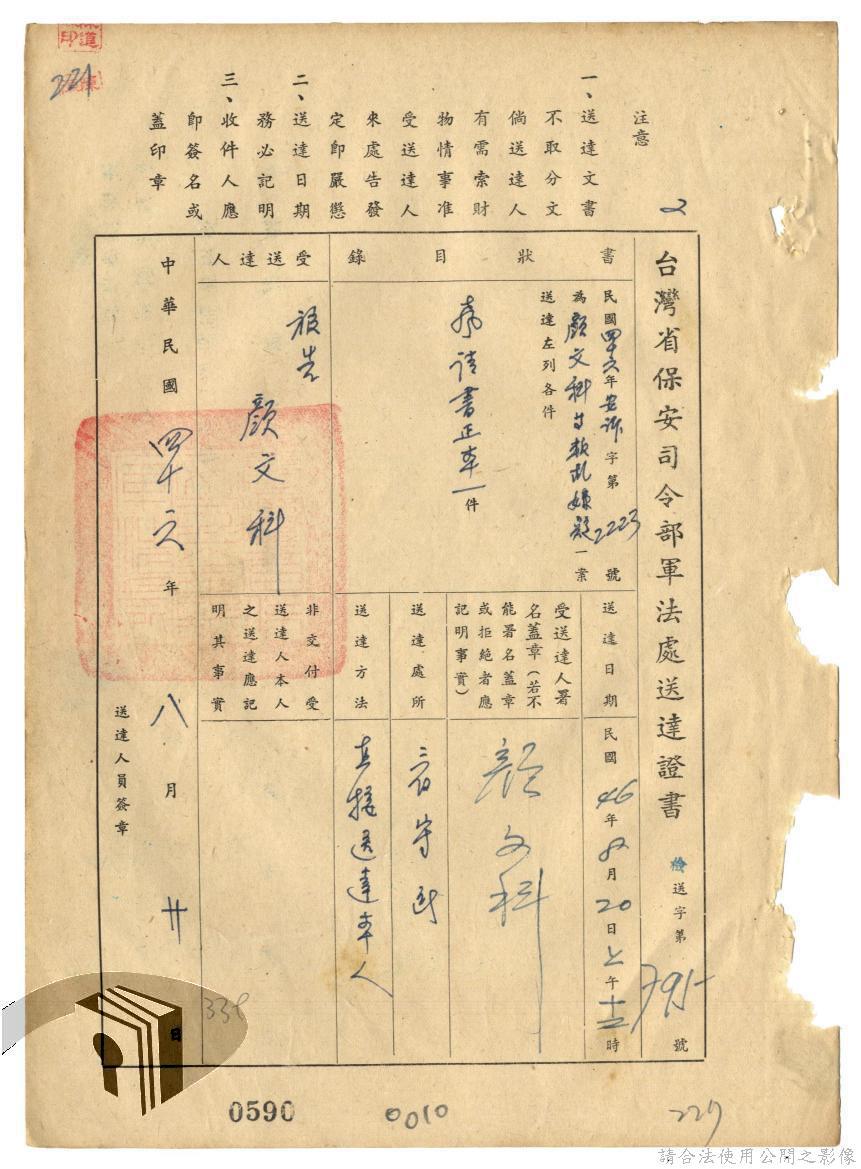 221
2
注意
一、送達文書
不取分文
倘送達人
有需索財
物情事准
受送達人
來處告發
定即嚴懲
二、送達日期
務必記明
三、收件人應
即簽名或
蓋印章
台灣省保安司令部軍法處送達證書 送字第795號
書狀目錄
民國四十六年安訴字第2223號
為顏文科等叛亂嫌疑一案
送達左列各件
書正本一件
送達日期 民國46年8月20日上午十時
受送達人署
名蓋章(若不
能署名蓋章
或拒絕者應
記明事實)
顏文科
送達處所
送達方法 直接送達本人
受送達人
被告 顏文科
非交付受
送達人本人
之送達應記
明其事實
中華民國四十六年八月廿日
送達人員簽章
338
0590
0010
227
請合法使用公開之影像